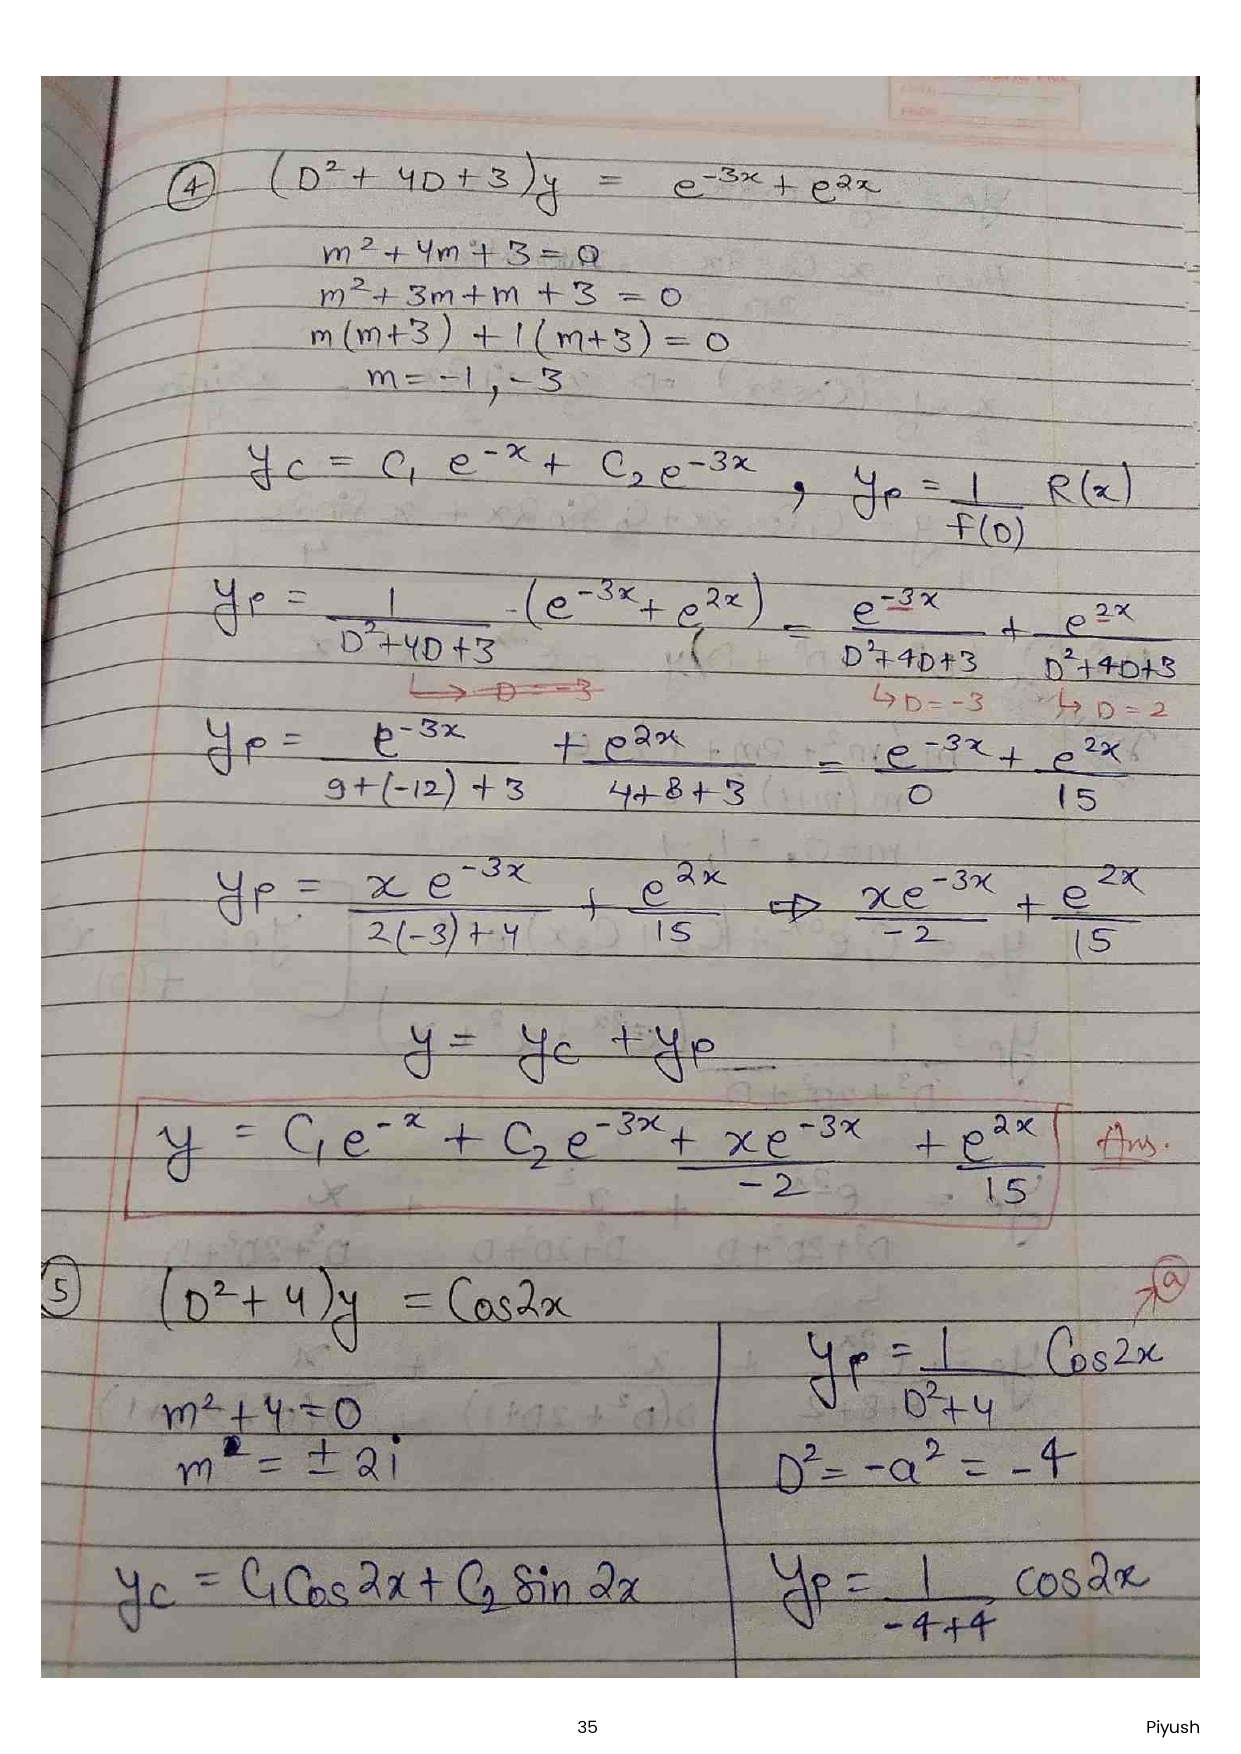 ④ (D² + 4D + 3)y = e^{-3x} + e^{2x}
m² + 4m + 3 = 0
m² + 3m + m + 3 = 0
m(m+3) + 1(m+3) = 0
m = -1, -3
y_c = C₁ e^{-x} + C₂ e^{-3x} , y_p = 1/f(D) R(x)
y_p = 1/(D²+4D+3) · (e^{-3x} + e^{2x}) = e^{-3x}/(D²+4D+3) + e^{2x}/(D²+4D+3)
↳ D = -3 ↳ D = -3 ↳ D = 2
y_p = e^{-3x}/(9+(-12)+3) + e^{2x}/(4+8+3) = e^{-3x}/0 + e^{2x}/15
y_p = x e^{-3x}/(2(-3)+4) + e^{2x}/15 ⇒ xe^{-3x}/-2 + e^{2x}/15
y = y_c + y_p
y = C₁e^{-x} + C₂e^{-3x} + xe^{-3x}/-2 + e^{2x}/15 Ans.
⑤ (D² + 4)y = Cos2x
m² + 4 = 0
m = ± 2i
y_c = C₁Cos2x + C₂ Sin2x
ⓐ
y_p = 1/(D²+4) Cos2x
D² = -a² = -4
y_p = 1/(-4+4) cos2x
35
Piyush